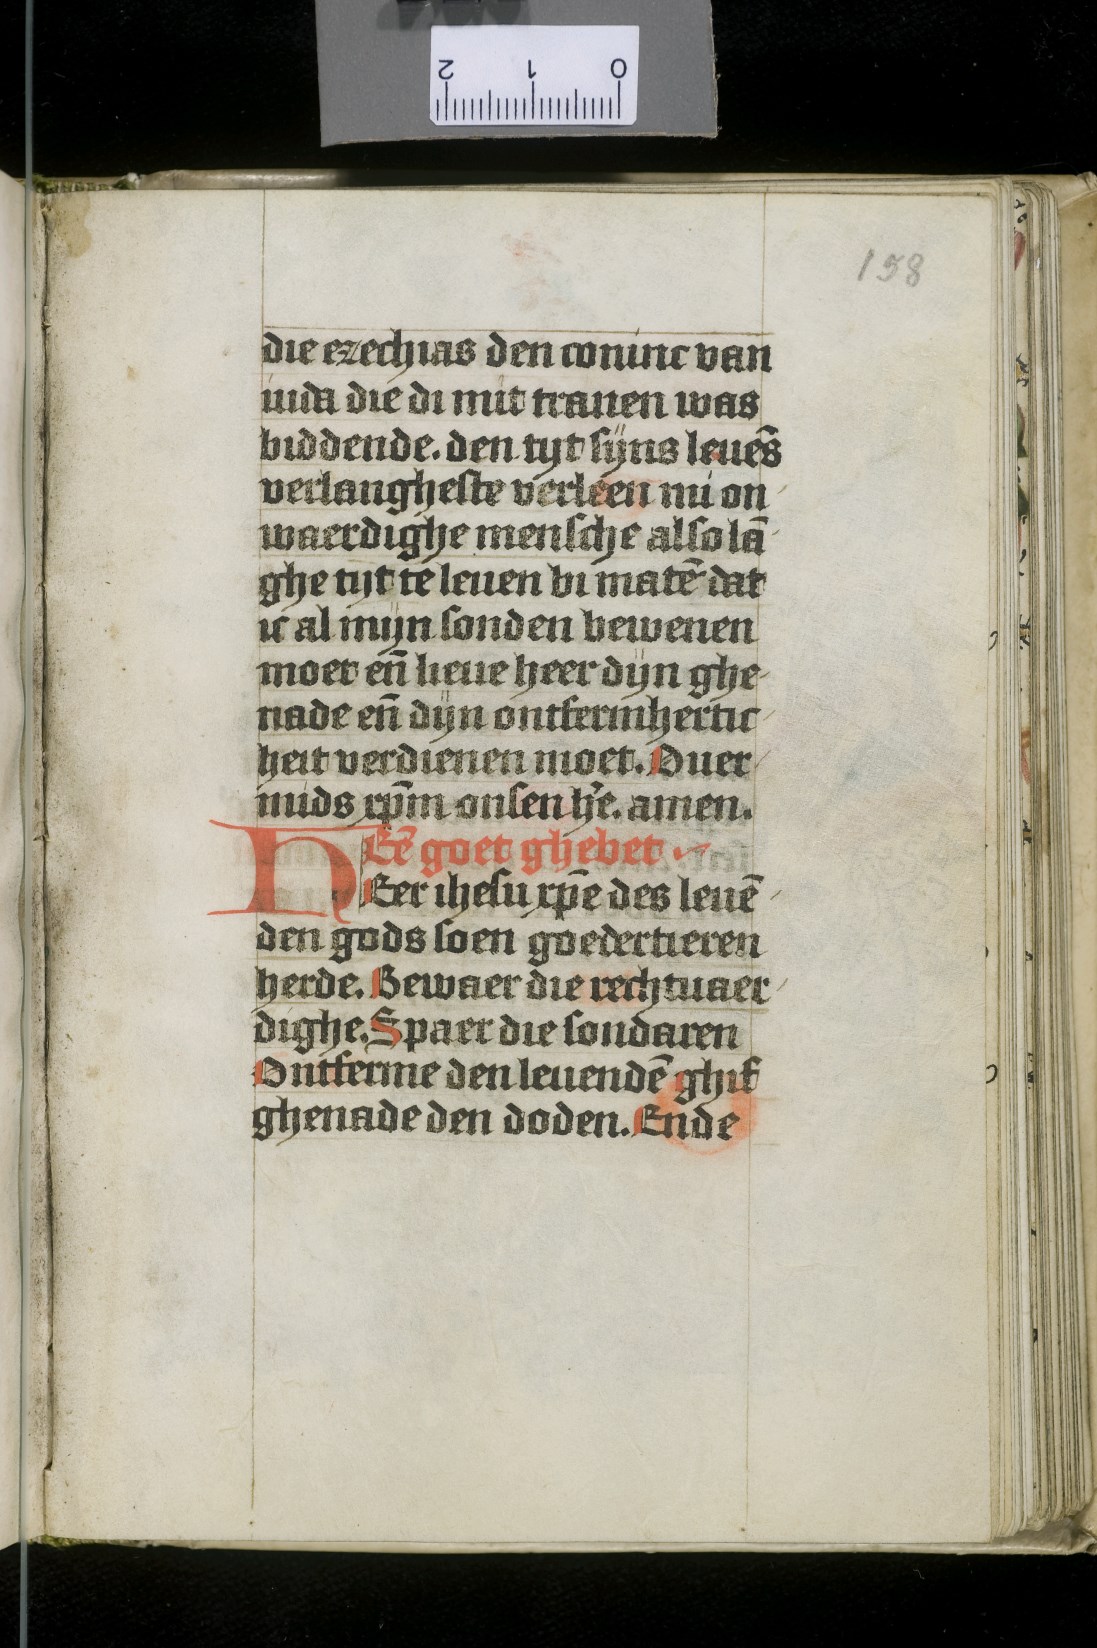 2 1 0
158
die ezechias den coninc van
iuda die di mit tranen was
biddende. den tijt sijns leue̅s
verlangheste verleen mi on
waerdighe mensche also la̅
ghe tijt te leuen bi mate̅ dat
ic al mijn sonden bewenen
moet en̅ lieue heer dijn ghe
nade en̅ dijn ontfermhertic
heit verdienen moet. Ouer
mids xp̅m onsen he̅. amen.
Ee̅ goet ghebet
HEer ihesu xp̅e des leue̅
den gods soen goedertieren
herde. Bewaer die rechtuaer
dighe. Spaer die sondaren
Ontferme den leuende̅ ghif
ghenade den doden. Ende